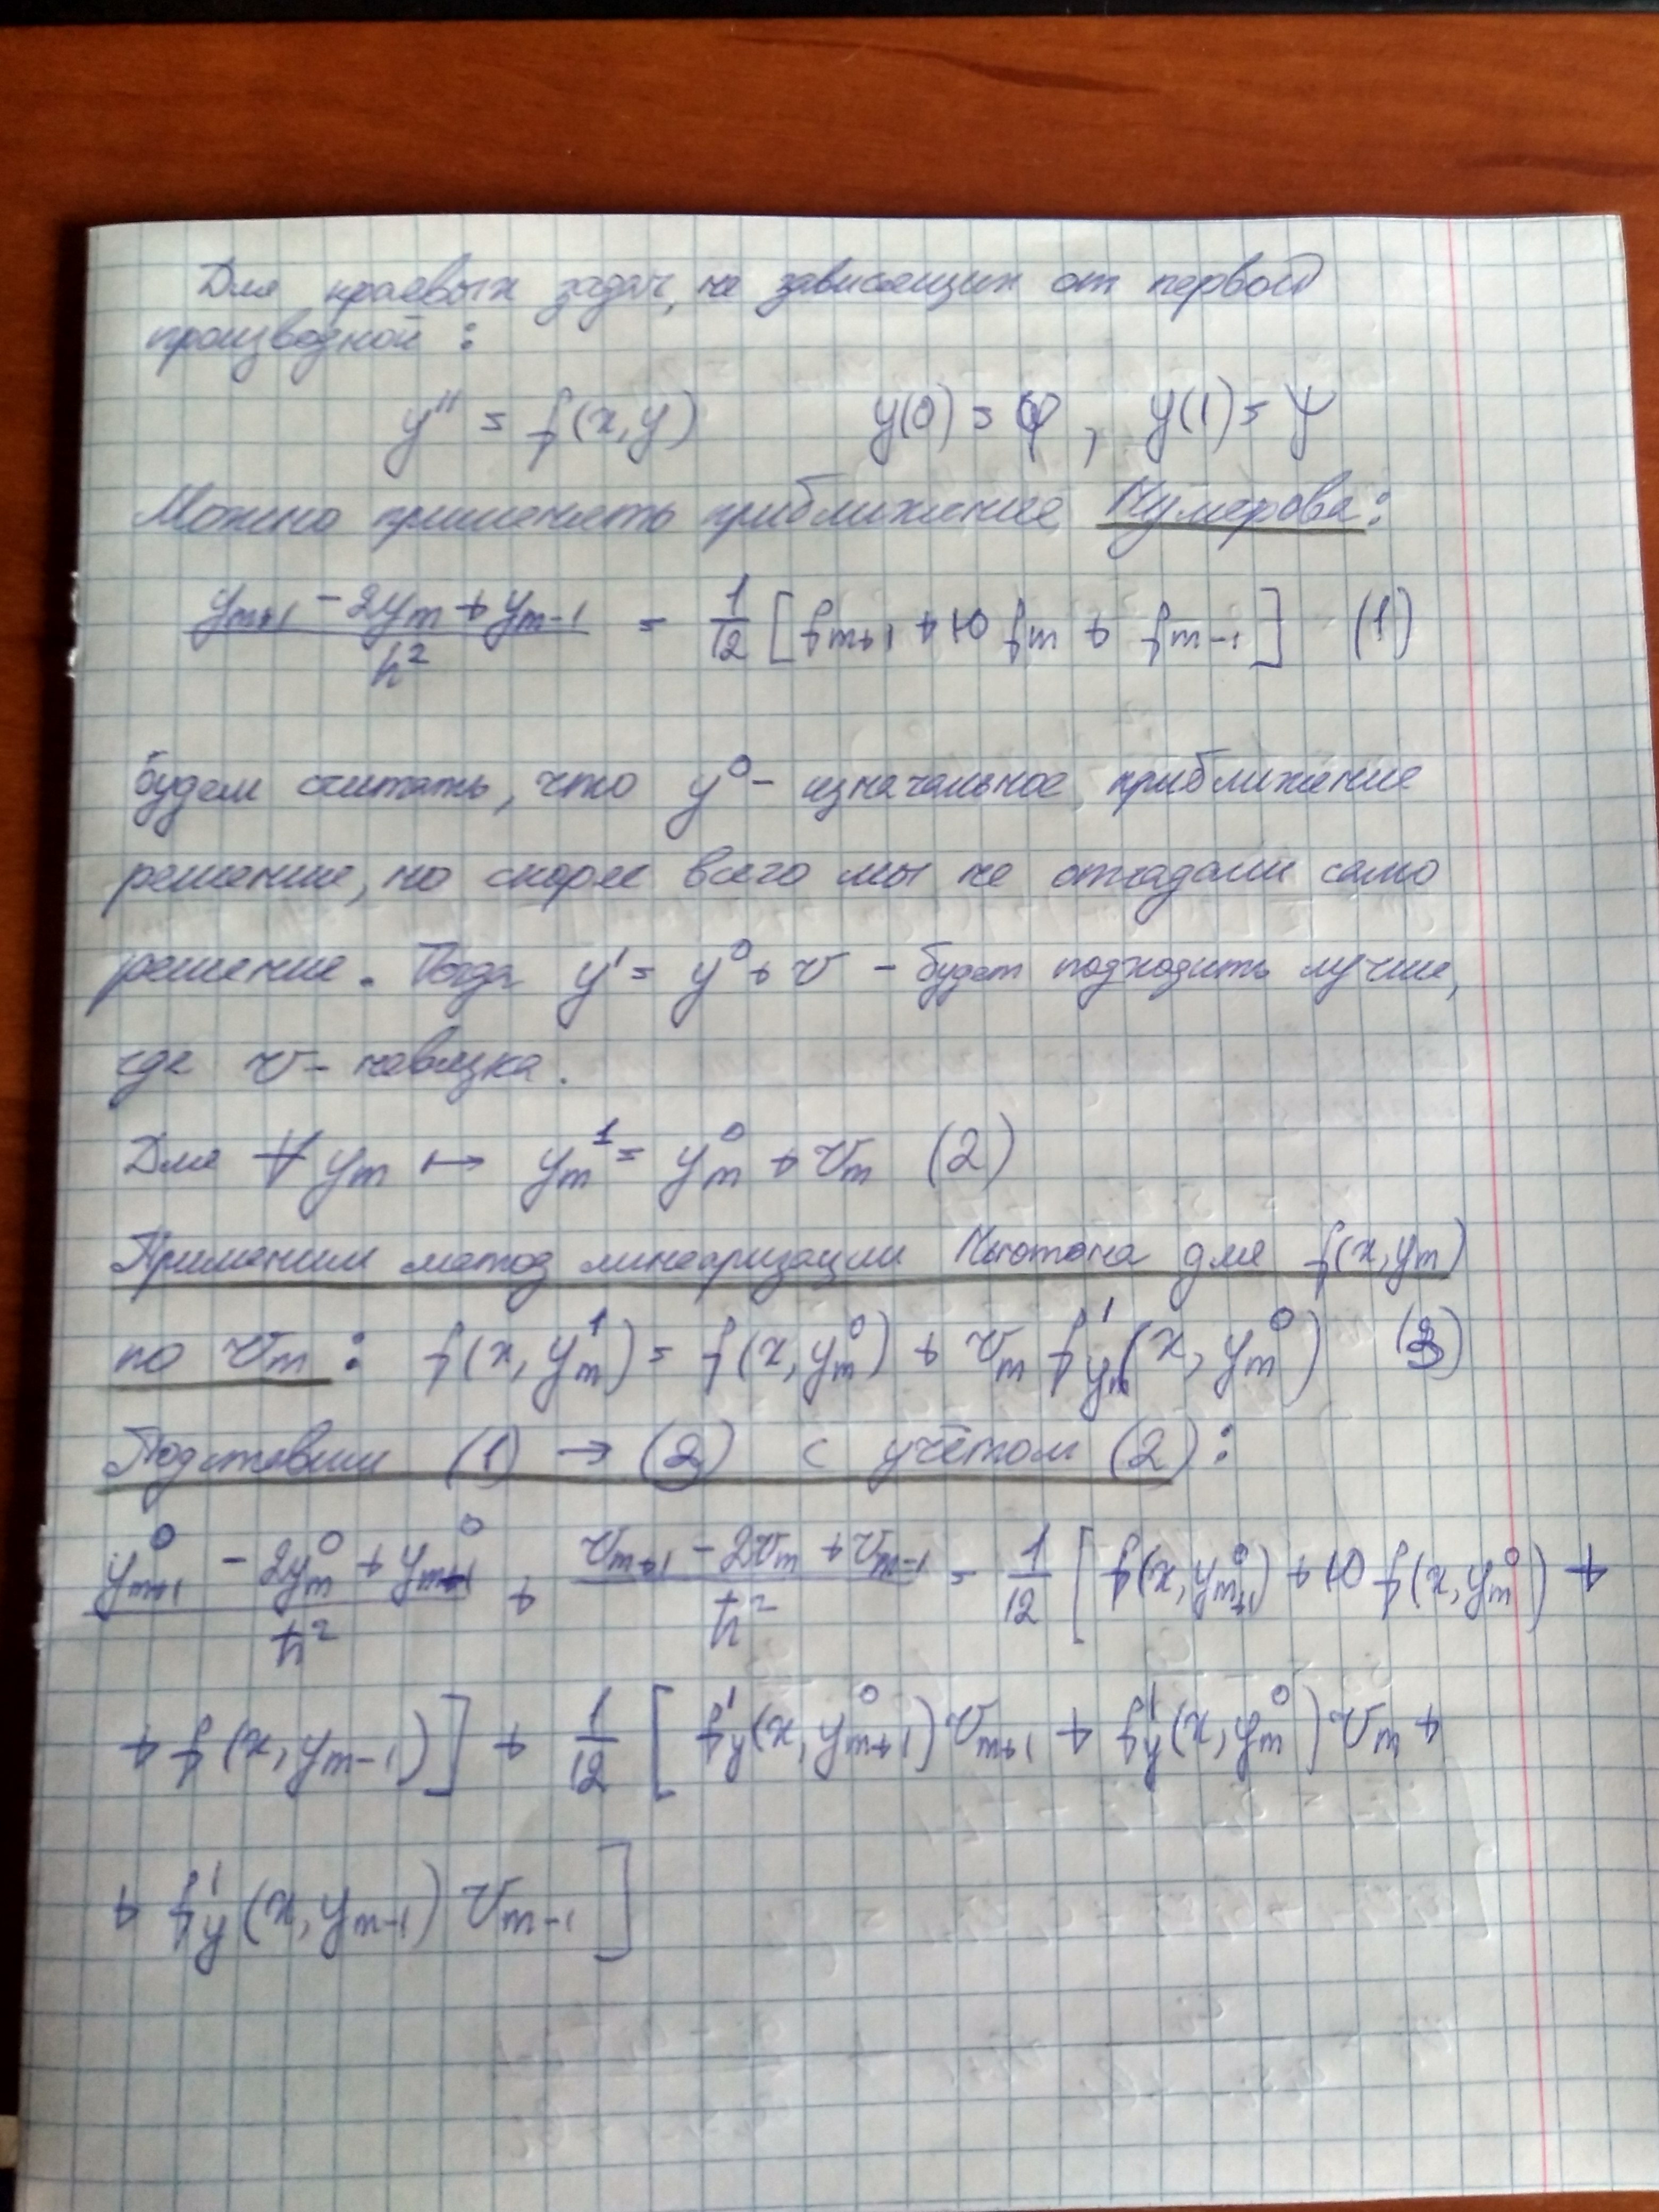 Для краевых задач, не зависящих от первой
производной:
y'' = f(x,y)   y(0) = φ, y(1) = ψ
Можно применеть приближение Нумерова:
(y_{m+1} - 2y_m + y_{m-1}) / h² = 1/12 [f_{m+1} + 10 f_m + f_{m-1}]   (1)
будем считать, что y⁰ - изначальное приближение
решение, но скорее всего мы не отгадали само
решение. Тогда y¹ = y⁰ + v - будет подходить лучше,
где v - невязка.
Для ∀ y_m ↦ y_m¹ = y_m⁰ + v_m (2)
Применим метод линеаризации Ньютона для f(x, y_m)
по v_m: f(x, y_m¹) = f(x, y_m⁰) + v_m f'_{y_m}(x, y_m⁰)   (3)
Подставим (1) → (3) с учётом (2):
(y⁰_{m+1} - 2y⁰_m + y⁰_{m-1}) / h² + (v_{m+1} - 2v_m + v_{m-1}) / h² = 1/12 [f(x, y⁰_{m+1}) + 10 f(x, y⁰_m) +
+ f(x, y_{m-1})] + 1/12 [f'_y(x, y⁰_{m+1}) v_{m+1} + f'_y(x, y⁰_m) v_m +
+ f'_y(x, y_{m-1}) v_{m-1}]